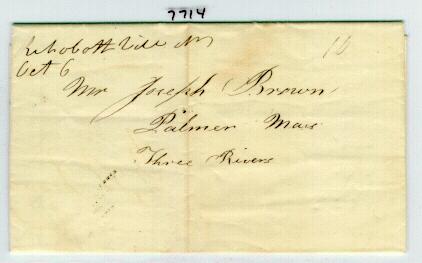 7714
10
Oct 6
Mr Joseph Brown
Palmer Mass
Three Rivers